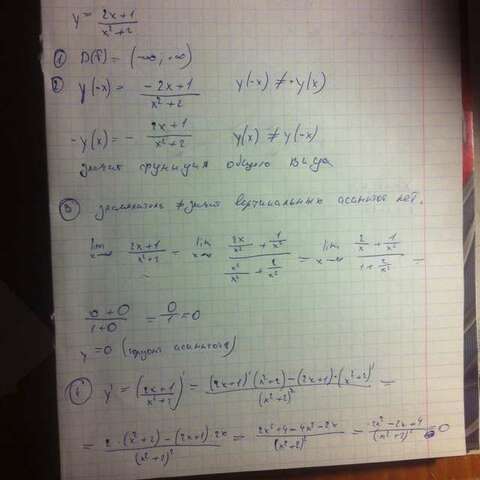 y = (2x+1)/(x²+2)
① D(f) = (-∞; +∞)
② y(-x) = (-2x+1)/(x²+2) y(-x) ≠ -y(x)
-y(x) = - (2x+1)/(x²+2) y(x) ≠ y(-x)
значит функция общего вида
③ знаменатель ≠ значит вертикальных асимптот нет.
lim x→∞ (2x+1)/(x²+2) = lim x→∞ (2x/x² + 1/x²)/(x²/x² + 2/x²) = lim x→∞ (2/x + 1/x²)/(1+ 2/x²) =
(0+0)/(1+0) = 0/1 = 0
y = 0 (асимптота)
④ y' = ((2x+1)/(x²+2))' = ((2x+1)'(x²+2) - (2x+1)·(x²+2)')/(x²+2)² =
= (2·(x²+2) - (2x+1)·2x)/(x²+2)² = (2x²+4-4x²-2x)/(x²+2)² = (-2x²-2x+4)/(x²+2)² = 0